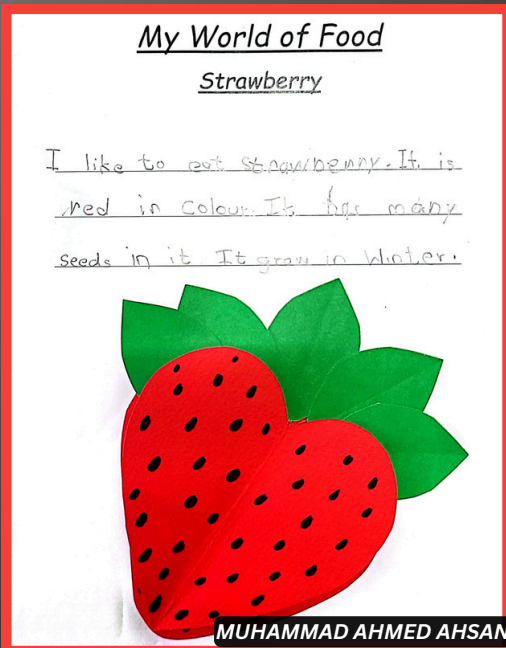 My World of Food
Strawberry
I like to eat strawberry. It is
red in colour. It has many
seeds in it. It grow in Winter.
MUHAMMAD AHMED AHSAN